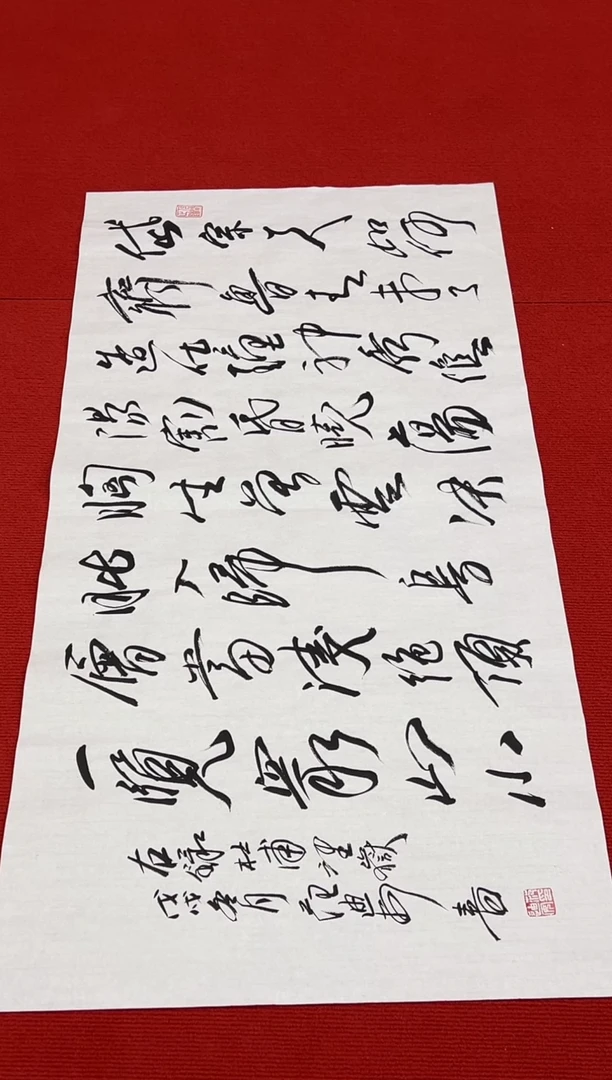 岱宗夫如何
齊魯青未了
造化鍾神秀陰
陽割昏曉蕩
胸生曾雲決
眦入歸鳥
會當凌絕頂
一覽眾山小
右錄杜甫望嶽
戊戌冬月 書